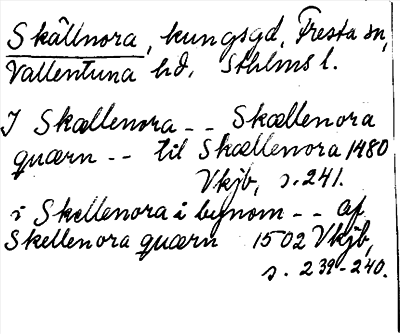 Skällnora, kungsgd, Fresta sn,
Vallentuna hd. Sthlms l.
I Skællenora -- Skællenora
quærn -- til Skællenora 1480
Vkjb, s. 241.
i Skellenora i bynom -- af
Skellenora quærn 1502 Vkjb,
s. 239-240.